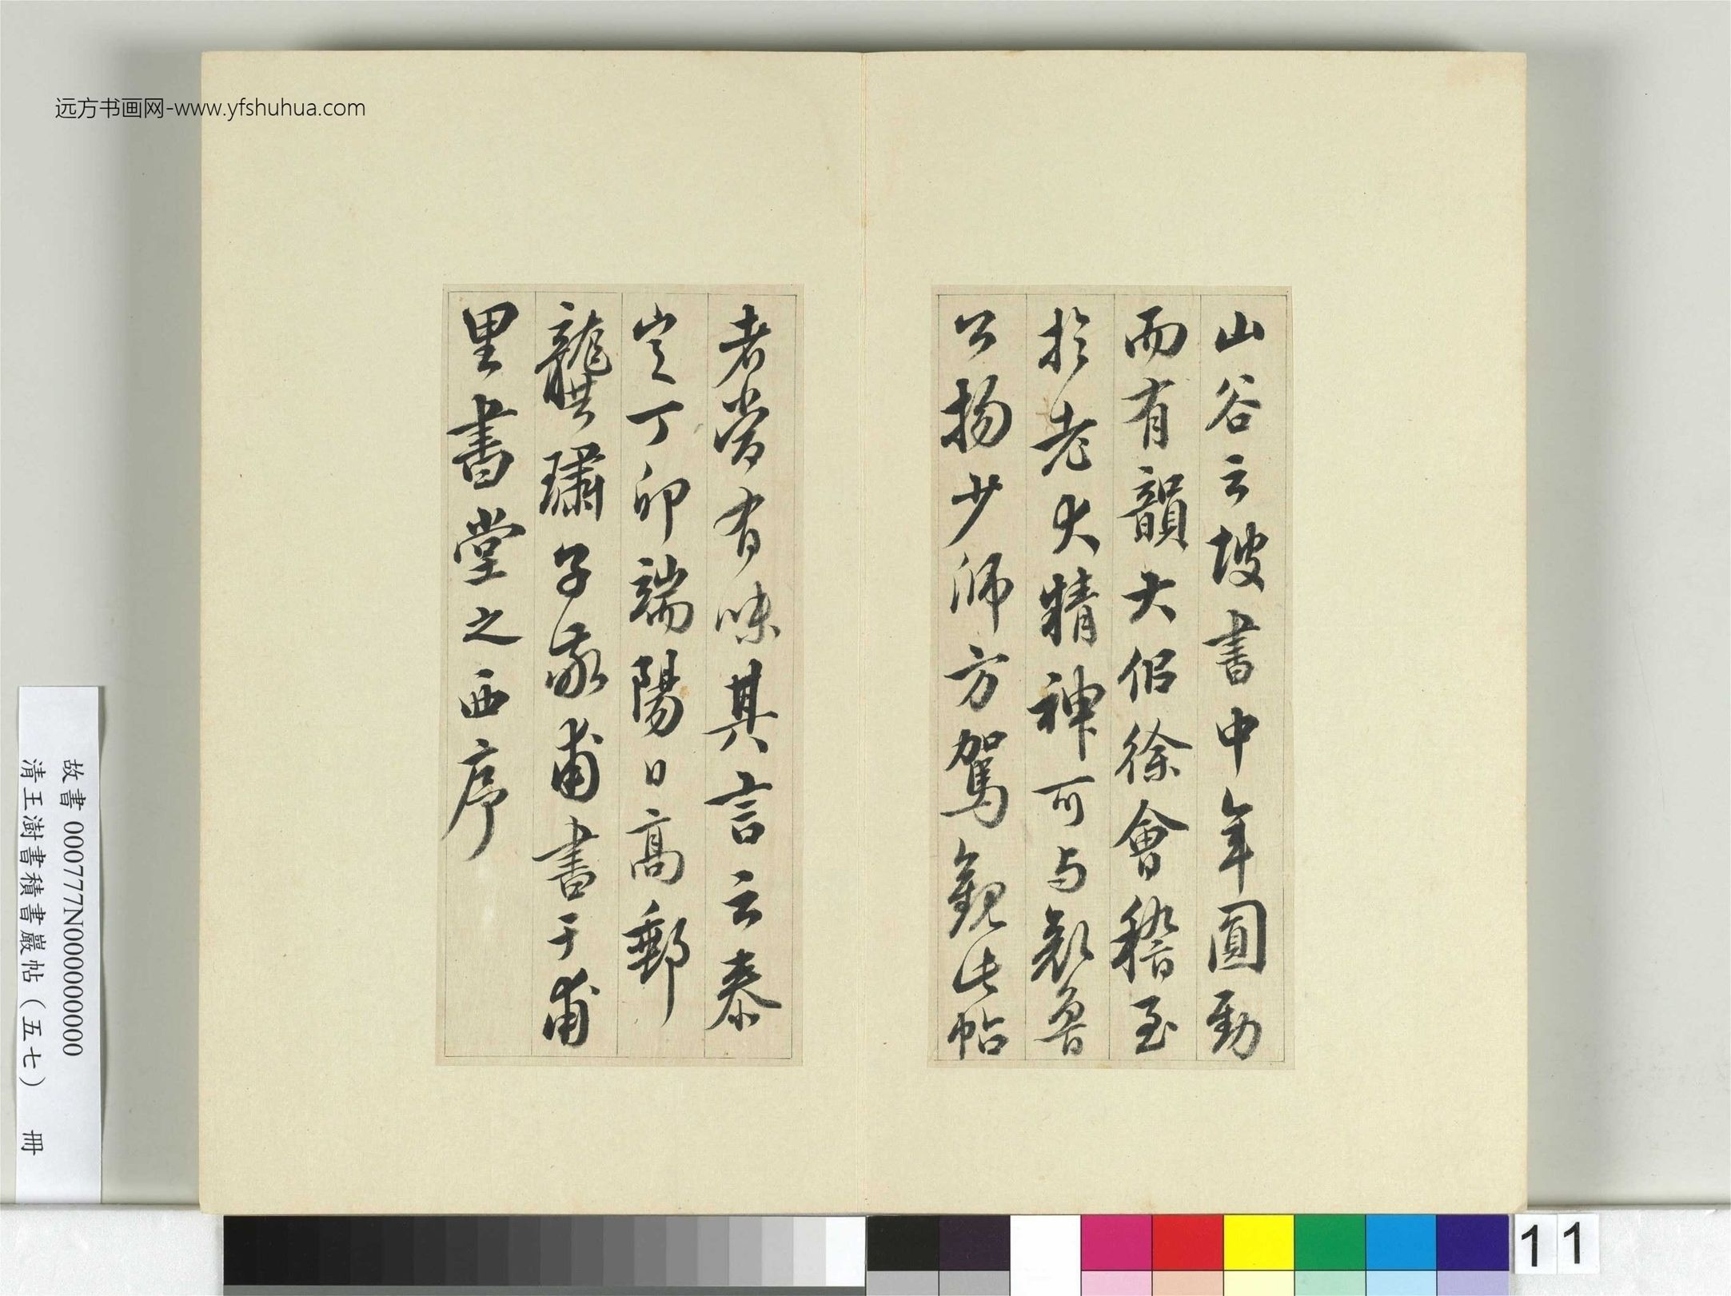 远方书画网-www.yfshuhua.com
山谷云坡書中年圓勁
而有韻大佀徐會稽至
於老大精神可与顏魯
公揚少師方駕觀此帖
者當有味其言云泰
定丁卯端陽日高郵
龔璛子敬甫書于甫
里書堂之西序
故書 000777N000000000
清王澍書積書巖帖（五七） 冊
11